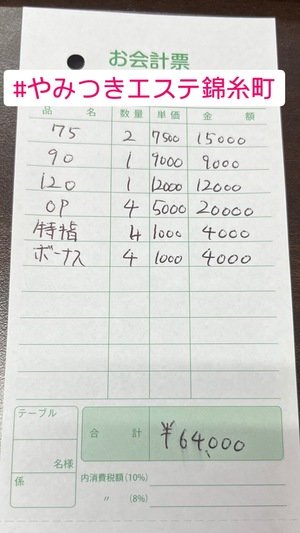 お会計票
#やみつきエステ錦糸町
品名 数量 単価 金額
75 2 7500 15000
90 1 9000 9000
120 1 12000 12000
OP 4 5000 20000
特指 4 1000 4000
ボーナス 4 1000 4000
テーブル
名様
係
合計 ¥64,000
内消費税額(10%)
〃 (8%)